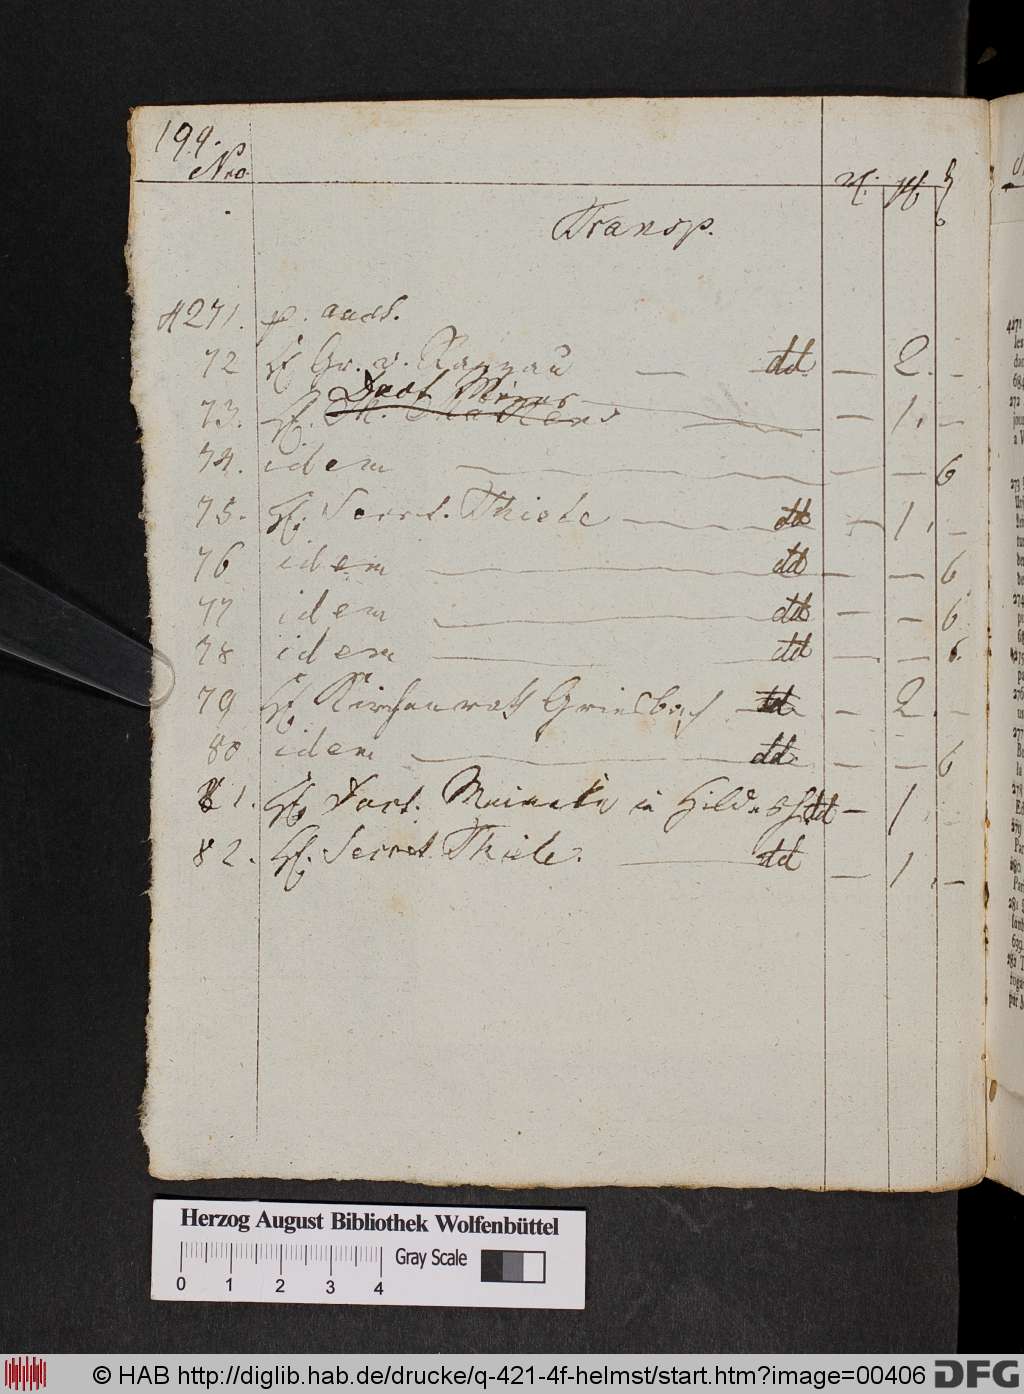 199.
Nro.
Transp.
4271. p. auct.
72 H. Gr. v. Ranzau — dd — 2. —
Doct. Meyer
73. H. — 1. —
74. idem — — — 6
75. H. Secret. Thiele — dd — 1. —
76 idem — dd — — 6
77 idem — dd — — 6
78 idem — dd — — 6.
79 H. Kirchenrath Griesbach — dd — 2. —
80 idem — dd — — 6
81. H. Doct. Meinecke in Hildesh. dd — 1.
82. H. Secret. Thiele. — dd — 1. —
Herzog August Bibliothek Wolfenbüttel
Gray Scale
0 1 2 3 4
© HAB http://diglib.hab.de/drucke/q-421-4f-helmst/start.htm?image=00406 DFG